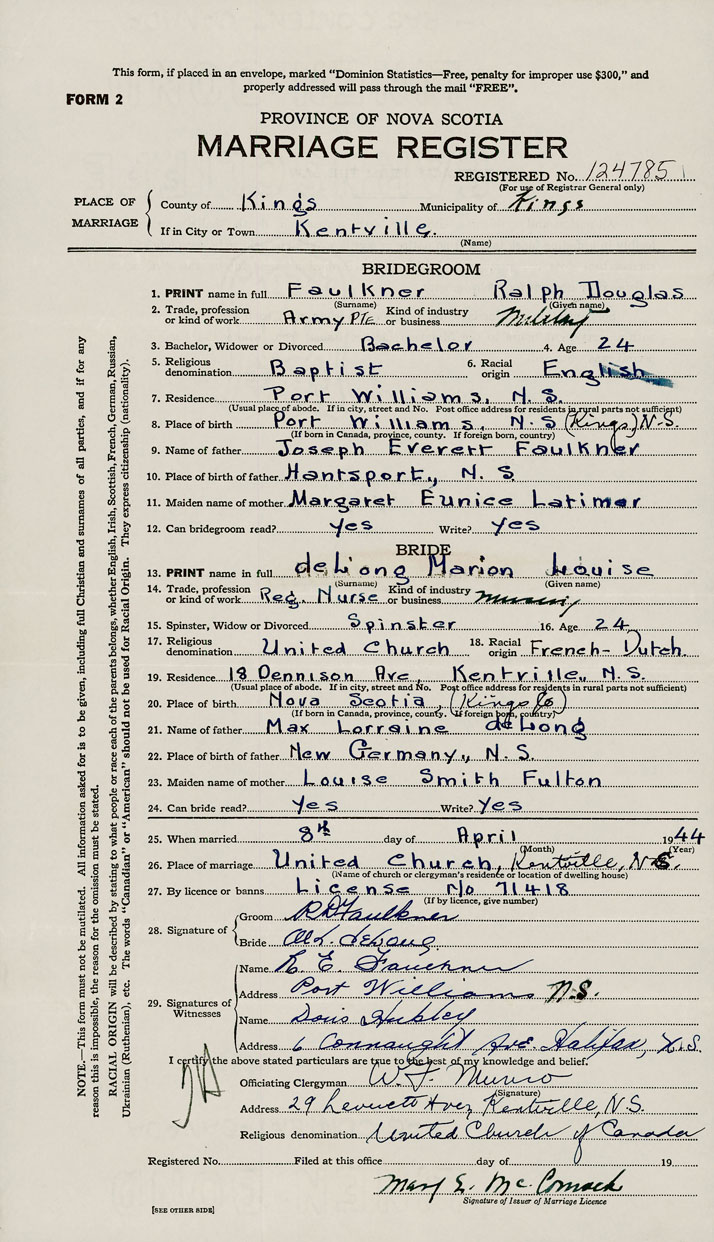 This form, if placed in an envelope, marked "Dominion Statistics—Free, penalty for improper use $300," and
properly addressed will pass through the mail "FREE".
FORM 2
PROVINCE OF NOVA SCOTIA
MARRIAGE REGISTER
REGISTERED No. 124785
(For use of Registrar General only)
PLACE OF MARRIAGE
County of Kings Municipality of Kings
If in City or Town Kentville.
(Name)
BRIDEGROOM
1. PRINT name in full Faulkner Ralph Douglas
(Surname) (Given name)
2. Trade, profession or kind of work Army Pte Kind of industry or business Military
3. Bachelor, Widower or Divorced Bachelor 4. Age 24
5. Religious denomination Baptist 6. Racial origin English
7. Residence Port Williams, N.S.
(Usual place of abode. If in city, street and No. Post office address for residents in rural parts not sufficient)
8. Place of birth Port Williams, N.S (Kings) N.S.
(If born in Canada, province, county. If foreign born, country)
9. Name of father Joseph Everett Faulkner
10. Place of birth of father Hantsport, N.S
11. Maiden name of mother Margaret Eunice Latimer
12. Can bridegroom read? yes Write? yes
BRIDE
13. PRINT name in full deLong Marion Louise
(Surname) (Given name)
14. Trade, profession or kind of work Reg. Nurse Kind of industry or business nursing
15. Spinster, Widow or Divorced Spinster 16. Age 24
17. Religious denomination United Church 18. Racial origin French-Dutch.
19. Residence 18 Dennison Ave, Kentville, N.S.
(Usual place of abode. If in city, street and No. Post office address for residents in rural parts not sufficient)
20. Place of birth Nova Scotia, (Kings Co)
(If born in Canada, province, county. If foreign born, country)
21. Name of father Max Lorraine deLong
22. Place of birth of father New Germany, N.S.
23. Maiden name of mother Louise Smith Fulton
24. Can bride read? yes Write? yes
25. When married 8th day of April 1944
(Month) (Year)
26. Place of marriage United Church, Kentville, N.S.
(Name of church or clergyman's residence or location of dwelling house)
27. By licence or banns License No 71418
(If by licence, give number)
28. Signature of
Groom R D Faulkner
Bride M.L. deLong
29. Signatures of Witnesses
Name R. E. Faulkner
Address Port Williams N.S.
Name Doris Hubley
Address 6 Connaught Ave. Halifax, N.S.
I certify the above stated particulars are true to the best of my knowledge and belief.
Officiating Clergyman W. F. Munro
(Signature)
Address 29 Leverett Ave, Kentville, N.S.
Religious denomination United Church of Canada
Registered No. Filed at this office day of 19
Mary E. McCormack
Signature of Issuer of Marriage Licence
[SEE OTHER SIDE]
NOTE.—This form must not be mutilated. All information asked for is to be given, including full Christian and surnames of all parties, and if for any
reason this is impossible, the reason for the omission must be stated.
RACIAL ORIGIN will be described by stating to what people or race each of the parents belongs, whether English, Irish, Scottish, French, German, Russian,
Ukrainian (Ruthenian), etc. The words "Canadian" or "American" should not be used for Racial Origin. They express citizenship (nationality).